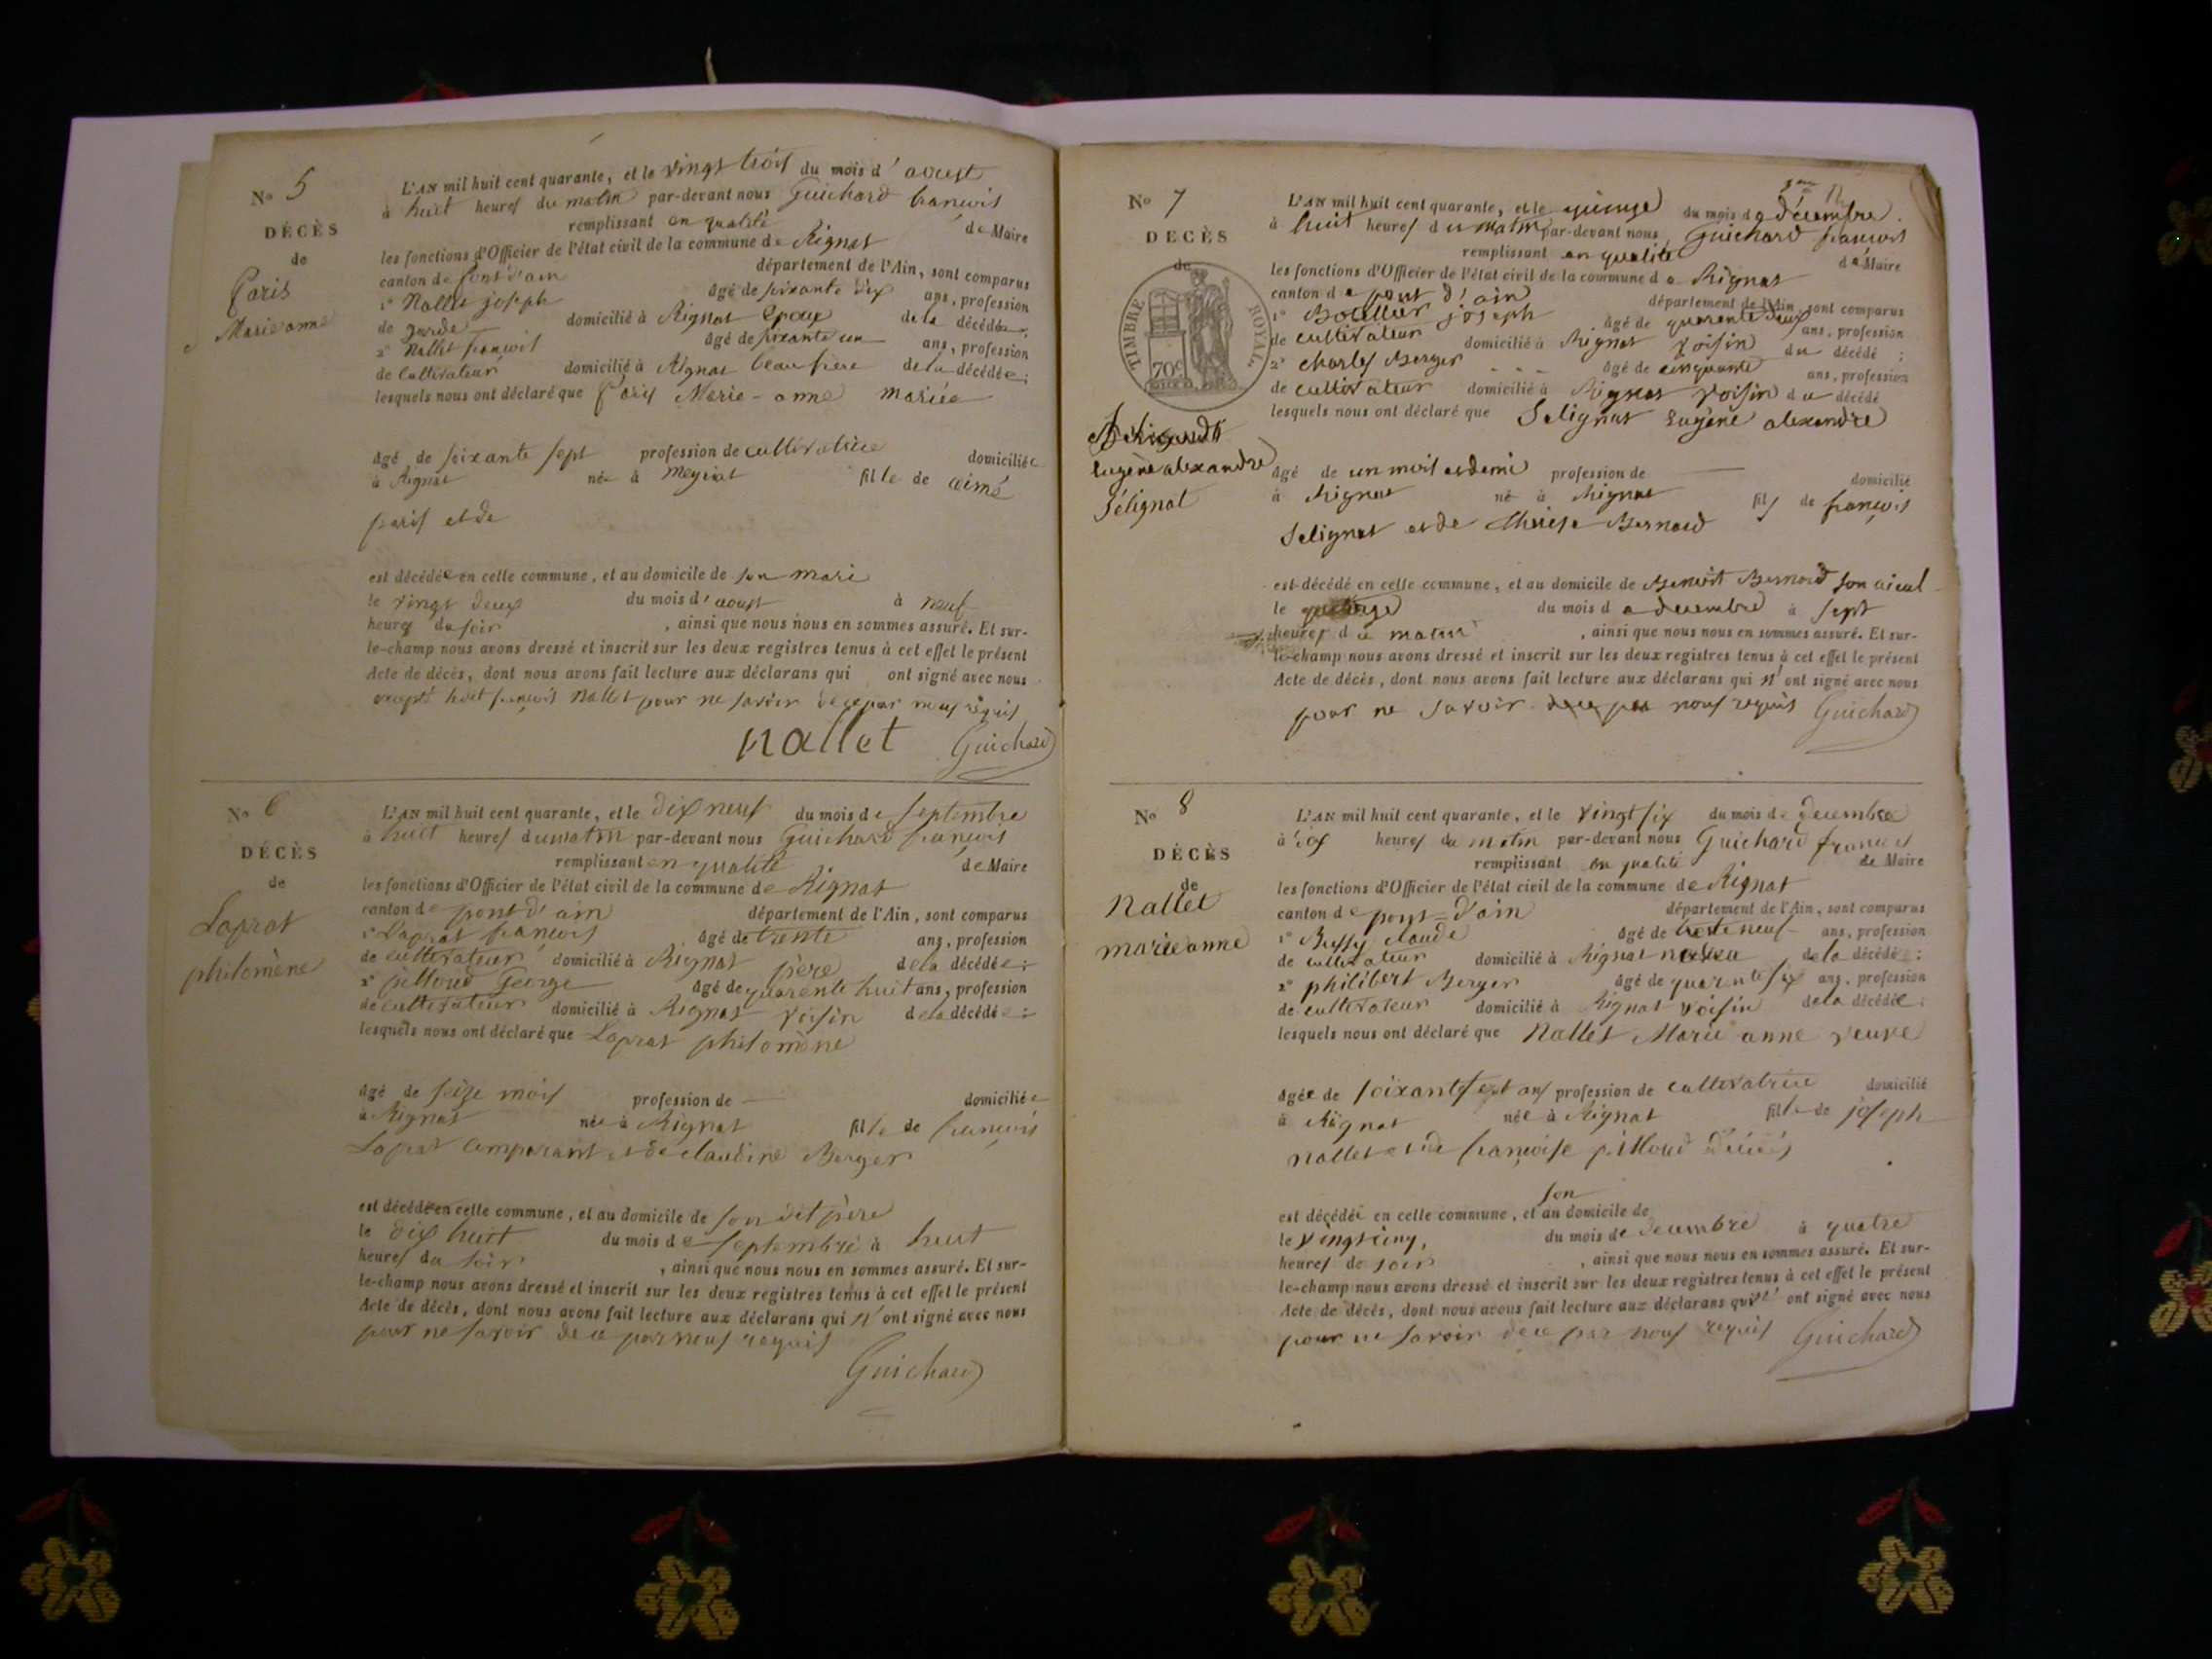 No 5
DÉCÈS
de
Paris
Marie anne
L'AN mil huit cent quarante, et le vingt trois du mois d'aoust
à huit heures du matin par-devant nous Guichard françois
remplissant en qualité de Maire
les fonctions d'Officier de l'état civil de la commune de Rignat
canton de pont d'ain département de l'Ain, sont comparus
1° Nallet joseph âgé de soixante dix ans, profession
de garde domicilié à Rignat Epoux de la décédée;
2° Nallet françois âgé de soixante un ans, profession
de Cultivateur domicilié à Rignat beau frère de la décédée;
lesquels nous ont déclaré que Paris Marie-anne mariée
âgé de soixante sept profession de cultivatrice domiciliée
à Rignat née à Meyriat fille de aimé
paris et de
est décédée en celle commune, et au domicile de son mari
le vingt deux du mois d'aoust à neuf
heures du soir, ainsi que nous nous en sommes assuré. Et sur-
le-champ nous avons dressé et inscrit sur les deux registres tenus à cet effet le présent
Acte de décès, dont nous avons fait lecture aux déclarans qui ont signé avec nous
excepté françois Nallet pour ne savoir de ce par nous requis
nallet Guichard
No 6
DÉCÈS
de
Laprat
philomène
L'AN mil huit cent quarante, et le dix neuf du mois de septembre
à huit heures du matin par-devant nous Guichard françois
remplissant en qualité de Maire
les fonctions d'Officier de l'état civil de la commune de Rignat
canton de pont d'ain département de l'Ain, sont comparus
1° Laprat françois âgé de trente ans, profession
de cultivateur domicilié à Rignat père de la décédée;
2° pilloud George âgé de quarante huit ans, profession
de cultivateur domicilié à Rignat voisin de la décédée;
lesquels nous ont déclaré que Laprat philomène
âgé de seize mois profession de — domiciliée
à Rignat née à Rignat fille de françois
Laprat comparant et de claudine Berger
est décédée en celle commune, et au domicile de son dit père
le dix huit du mois de septembre à huit
heures du soir, ainsi que nous nous en sommes assuré. Et sur-
le-champ nous avons dressé et inscrit sur les deux registres tenus à cet effet le présent
Acte de décès, dont nous avons fait lecture aux déclarans qui n'ont signé avec nous
pour ne savoir de ce par nous requis
Guichard
No 7
DÉCÈS
de
TIMBRE ROYAL
70c
Eugène alexandre
Sélignat
L'AN mil huit cent quarante, et le quinze du mois de décembre.
à huit heures du matin par-devant nous Guichard françois
remplissant en qualité de Maire
les fonctions d'Officier de l'état civil de la commune de Rignat
canton de pont d'ain département de l'Ain, sont comparus
1° joseph âgé de quarante deux ans, profession
de cultivateur domicilié à Rignat voisin du décédé;
2° charles Berger âgé de cinquante ans, profession
de cultivateur domicilié à Rignat voisin du décédé
lesquels nous ont déclaré que Selignat Eugène alexandre
âgé de un mois et demi profession de — domicilié
à Rignat né à Rignat fils de françois
Selignat et de Thérèse Bernard
est décédé en celle commune, et au domicile de Benoit Bernard son aïeul
le quinze du mois de decembre à sept
heures du matin, ainsi que nous nous en sommes assuré. Et sur-
le-champ nous avons dressé et inscrit sur les deux registres tenus à cet effet le présent
Acte de décès, dont nous avons fait lecture aux déclarans qui n'ont signé avec nous
pour ne savoir de ce par nous requis Guichard
No 8
DÉCÈS
de
Nallet
marie anne
L'AN mil huit cent quarante, et le vingt six du mois de decembre
à dix heures du matin par-devant nous Guichard françois
remplissant en qualité de Maire
les fonctions d'Officier de l'état civil de la commune de Rignat
canton de pont-d'ain département de l'Ain, sont comparus
1° Bussy claude âgé de trente neuf ans, profession
de cultivateur domicilié à Rignat neveu de la décédée;
2° philibert Berger âgé de quarante six ans, profession
de cultivateur domicilié à Rignat voisin de la décédée;
lesquels nous ont déclaré que Nallet Marie anne veuve
âgée de soixante sept ans profession de cultivatrice domicilié
à Rignat née à Rignat fille de joseph
nallet et de françoise pilloud décédés
est décédée en celle commune, et au domicile de son
le vingt cinq, du mois de decembre à quatre
heures de soir, ainsi que nous nous en sommes assuré. Et sur-
le-champ nous avons dressé et inscrit sur les deux registres tenus à cet effet le présent
Acte de décès, dont nous avons fait lecture aux déclarans qui n'ont signé avec nous
pour ne savoir de ce par nous requis Guichard